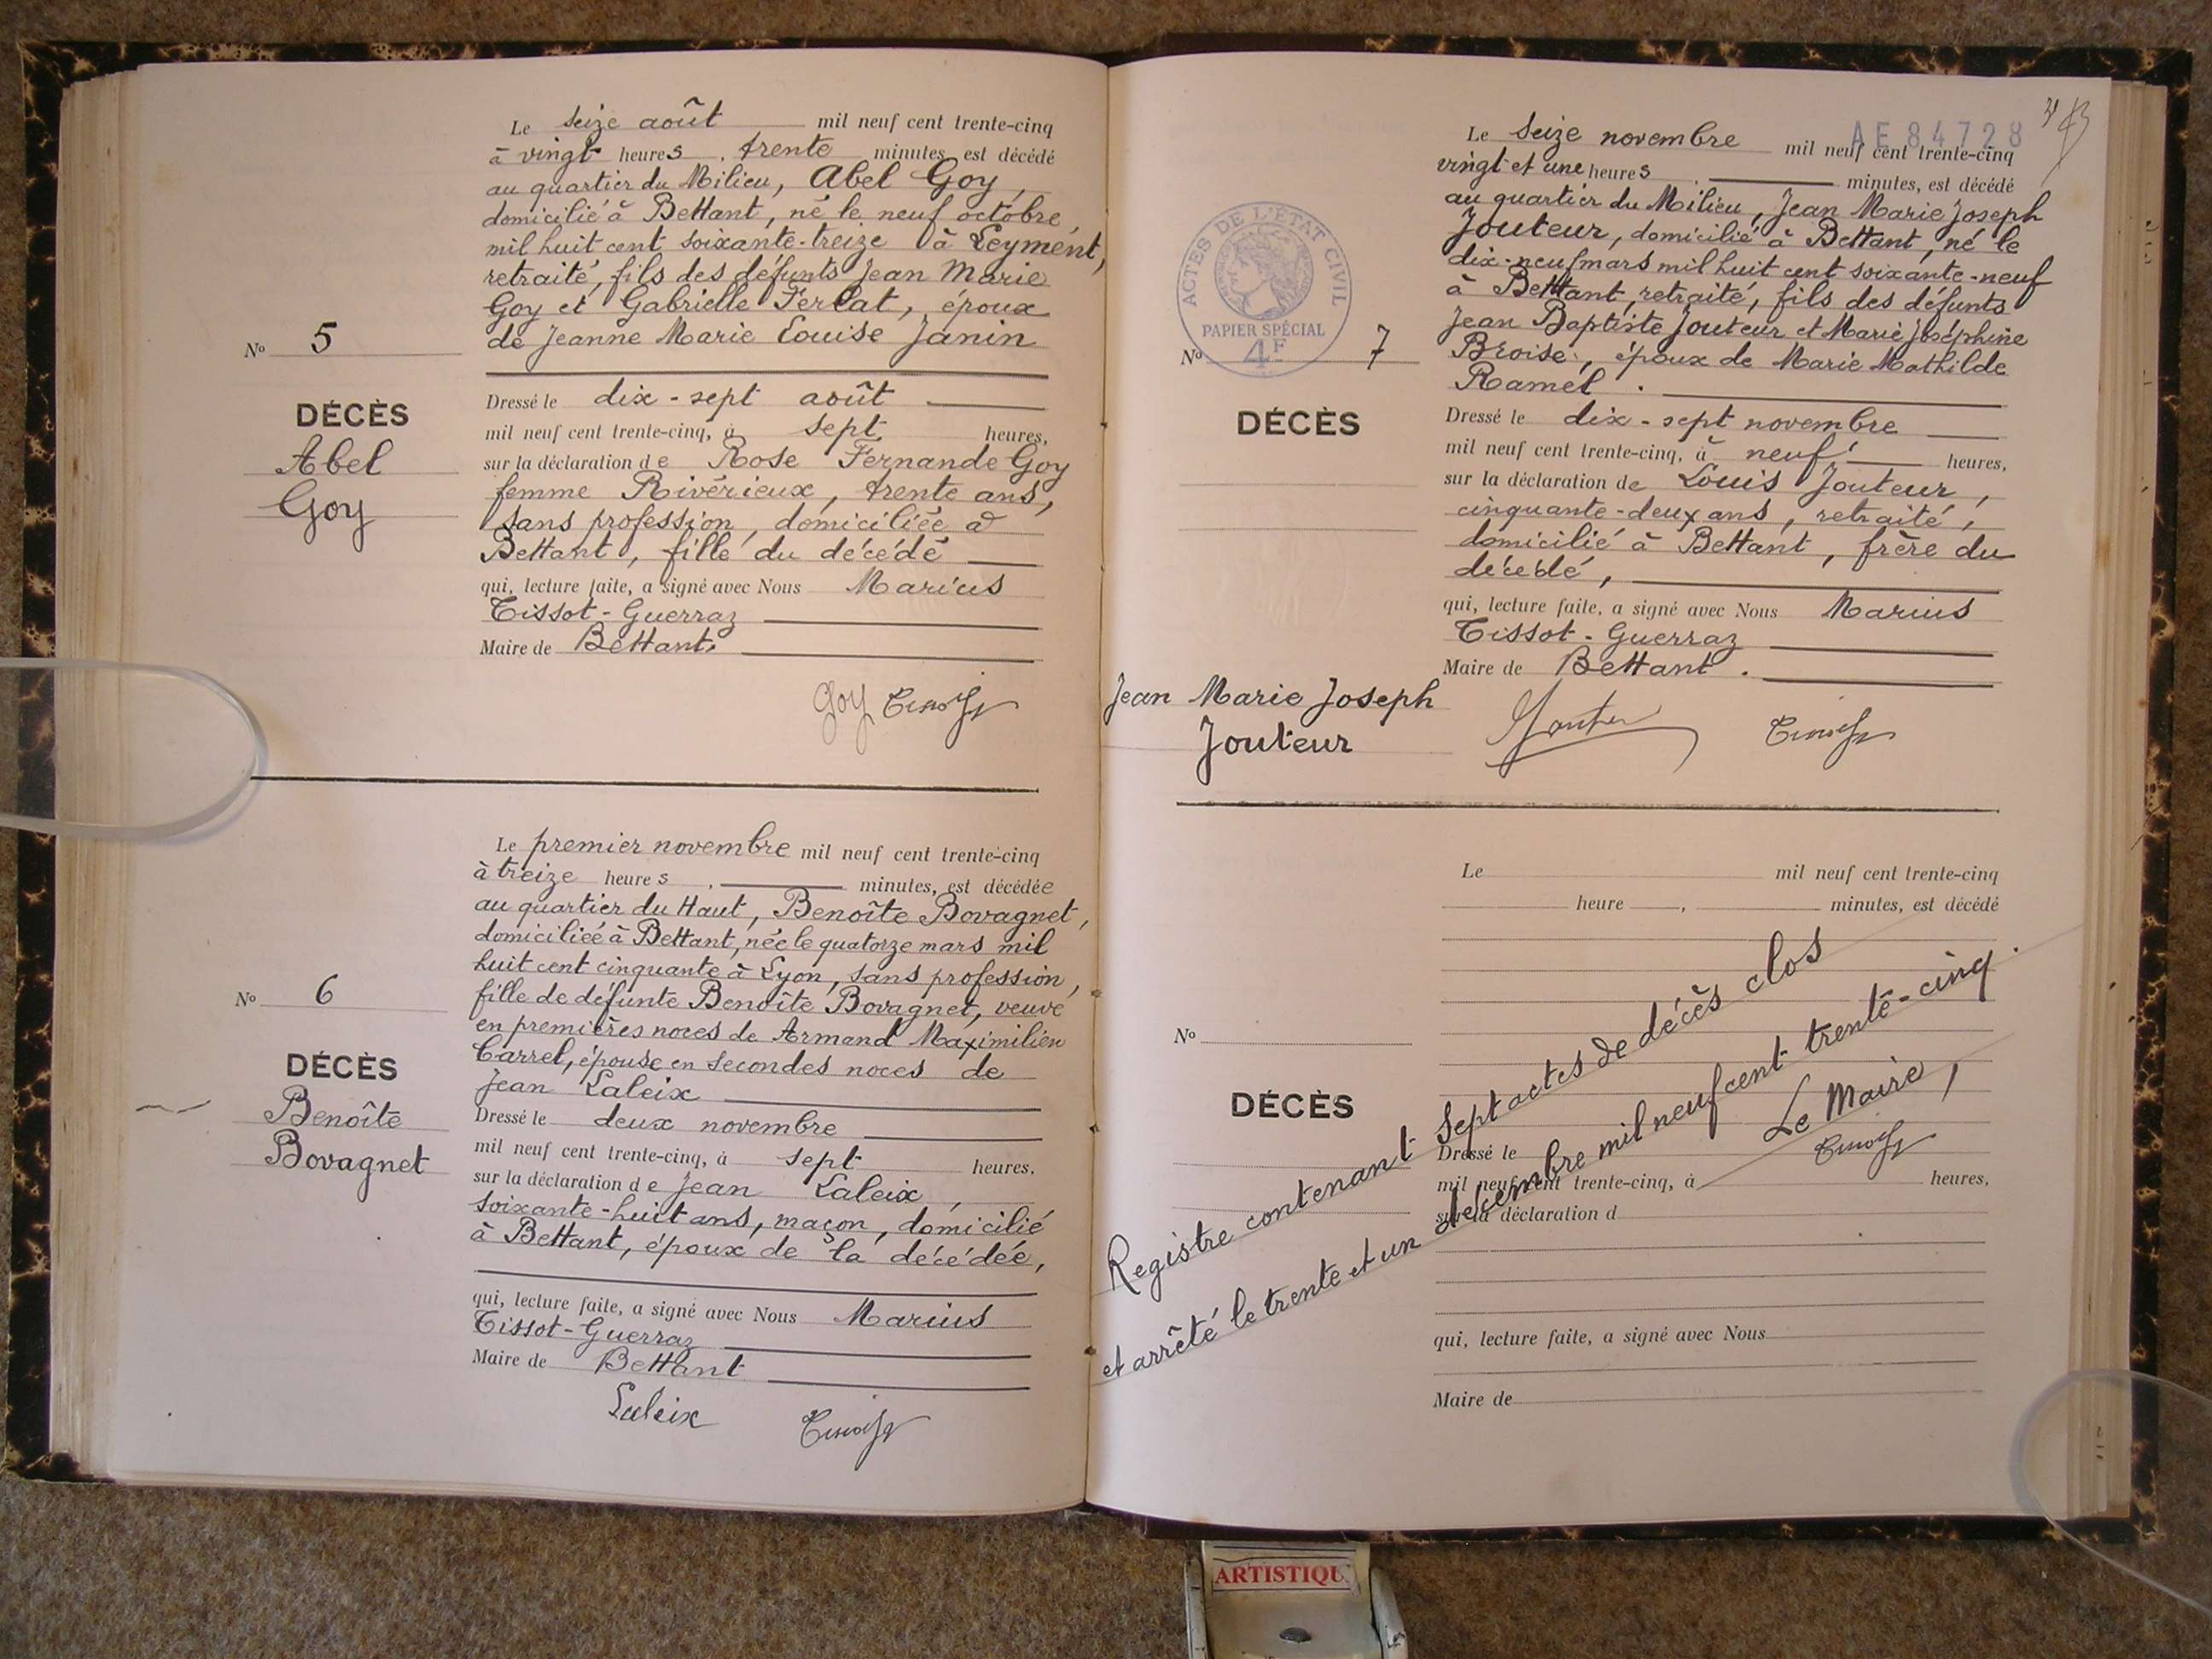 Le seize août mil neuf cent trente-cinq
à vingt heures, trente minutes, est décédé
au quartier du Milieu, Abel Goy,
domicilié à Bettant, né le neuf octobre
mil huit cent soixante-treize à Leyment,
retraité, fils des défunts Jean Marie
Goy et Gabrielle Ferlat, époux
de Jeanne Marie Louise Janin
No 5
DÉCÈS
Abel
Goy
Dressé le dix-sept août
mil neuf cent trente-cinq, à sept heures,
sur la déclaration de Rose Fernande Goy
femme Rivérieux, trente ans,
sans profession, domiciliée à
Bettant, fille du décédé
qui, lecture faite, a signé avec Nous Marius
Tissot-Guerraz
Maire de Bettant.
Goy
Le premier novembre mil neuf cent trente-cinq
à treize heures, minutes, est décédée
au quartier du Haut, Benoîte Bovagnet,
domiciliée à Bettant, née le quatorze mars mil
huit cent cinquante à Lyon, sans profession,
fille de défunte Benoîte Bovagnet, veuve
en premières noces de Armand Maximilien
Carrel, épouse en secondes noces de
Jean Laleix
No 6
DÉCÈS
Benoîte
Bovagnet
Dressé le deux novembre
mil neuf cent trente-cinq, à sept heures.
sur la déclaration de Jean Laleix,
soixante-huit ans, maçon, domicilié
à Bettant, époux de la décédée,
qui, lecture faite, a signé avec Nous Marius
Tissot-Guerraz
Maire de Bettant
Laleix
AE84728
Le seize novembre mil neuf cent trente-cinq
vingt et une heures, minutes, est décédé
au quartier du Milieu, Jean Marie Joseph
Jouteur, domicilié à Bettant, né le
dix-neuf mars mil huit cent soixante-neuf
à Bettant, retraité, fils des défunts
Jean Baptiste Jouteur et Marie Joséphine
Broise, époux de Marie Mathilde
Ramel.
ACTES DE L'ÉTAT CIVIL
PAPIER SPÉCIAL
4F
No 7
DÉCÈS
Dressé le dix-sept novembre
mil neuf cent trente-cinq, à neuf heures,
sur la déclaration de Louis Jouteur,
cinquante-deux ans, retraité,
domicilié à Bettant, frère du
décédé,
qui, lecture faite, a signé avec Nous Marius
Tissot-Guerraz
Maire de Bettant.
Jean Marie Joseph
Jouteur
Le mil neuf cent trente-cinq
heure, minutes, est décédé
No
DÉCÈS
Dressé le
mil neuf cent trente-cinq, à heures,
sur la déclaration d
qui, lecture faite, a signé avec Nous
Maire de
Registre contenant sept actes de décès clos
et arrêté le trente et un décembre mil neuf cent trente-cinq.
Le Maire,
ARTISTIQU